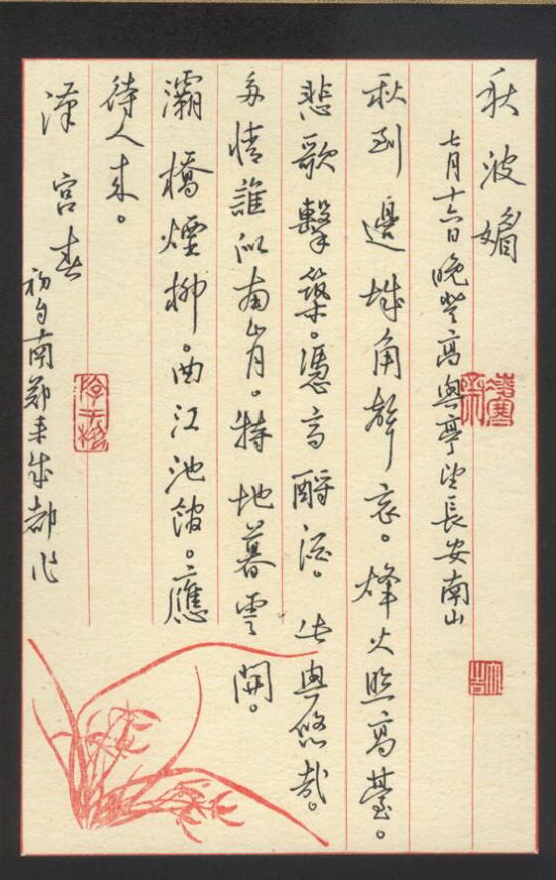 秋波媚
七月十六日晚登高興亭望長安南山
秋到邊城角聲哀。烽火照高臺。
悲歌擊築。憑高酹酒。此興悠哉。
多情誰似南山月。特地暮雲開。
灞橋煙柳。曲江池館。應
待人來。
漢宮春
初自南鄭來成都作